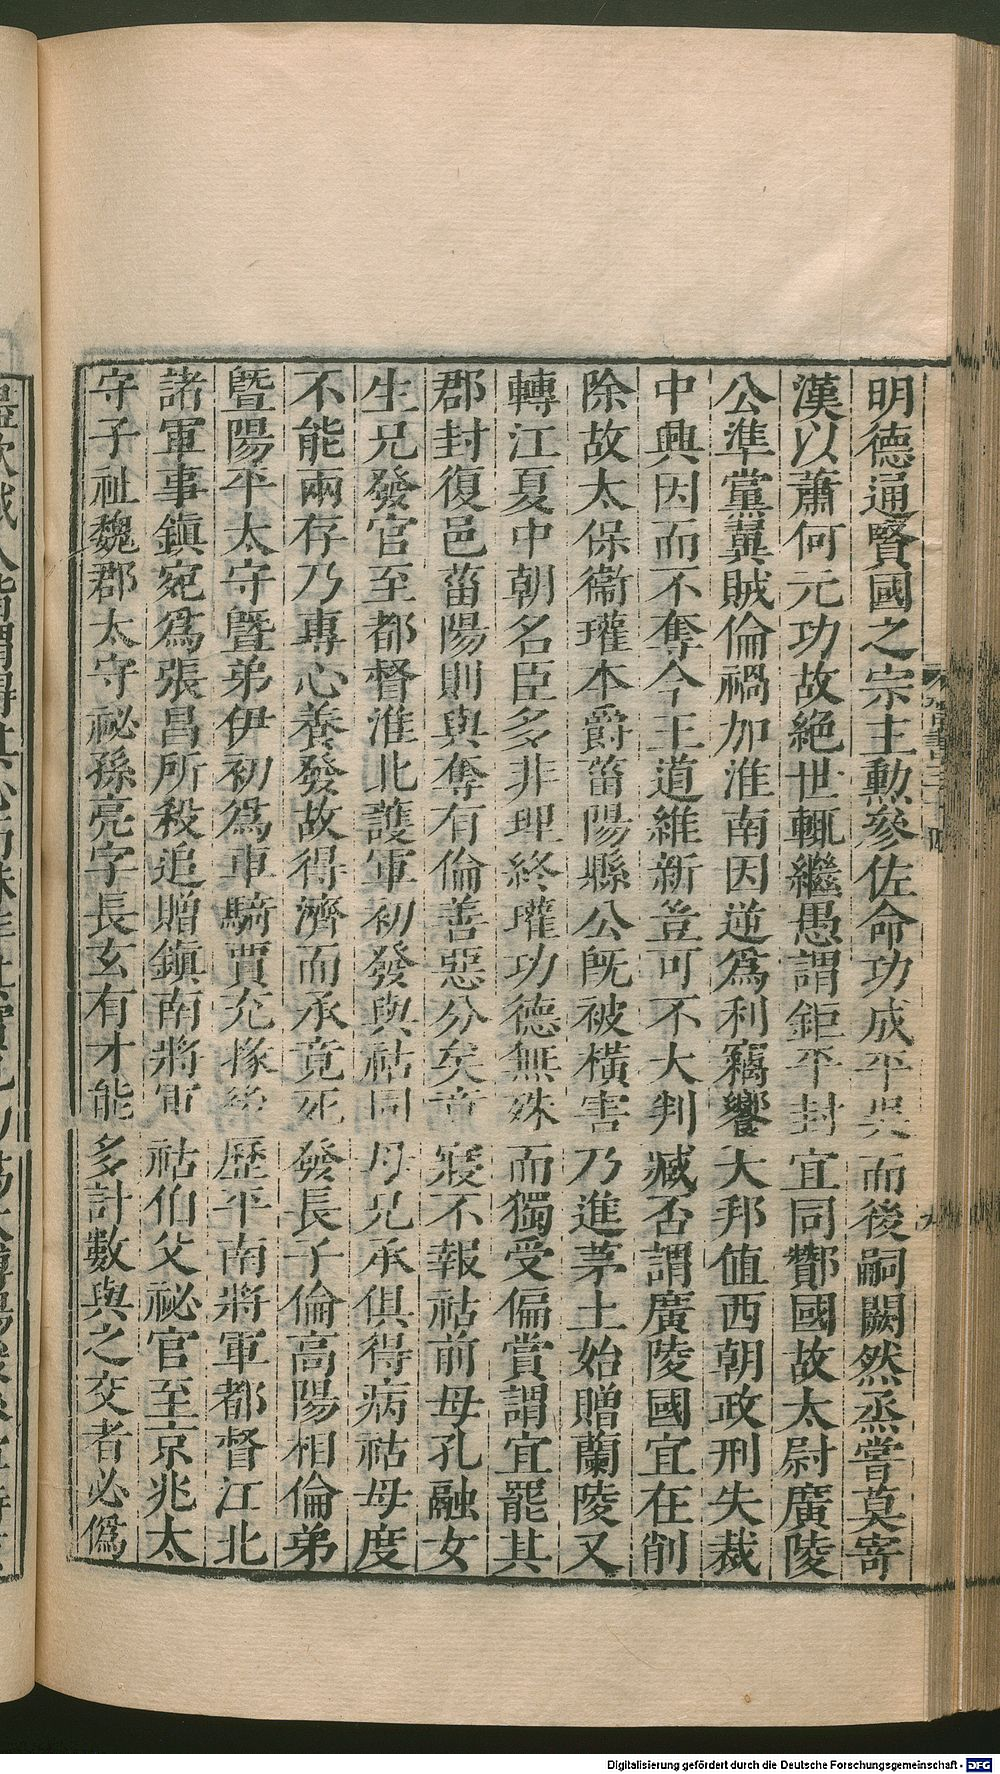 明德通賢國之宗主勳參佐命功成平吳而後嗣闕然烝嘗莫寄
漢以蕭何元功故絕世輒繼愚謂鉅平封宜同酇國故太尉廣陵
公準黨翼賊倫禍加淮南因逆爲利竊饗大邦值西朝政刑失裁
中興因而不奪今王道維新豈可不大判臧否謂廣陵國宜在削
除故太保衞瓘本爵菑陽縣公既被橫害乃進茅土始贈蘭陵又
轉江夏中朝名臣多非理終瓘功德無殊而獨受偏賞謂宜罷其
郡封復邑菑陽則與奪有倫善惡分矣竟寢不報祜前母孔融女
生兄發官至都督淮北護軍初發與祜同母兄承俱得病祜母度
不能兩存乃專心養發故得濟而承竟死發長子倫高陽相倫弟
暨陽平太守暨弟伊初爲車騎賈充掾後歷平南將軍都督江北
諸軍事鎮宛爲張昌所殺追贈鎮南將軍祜伯父祕官至京兆太
守子祉魏郡太守祕孫亮字長玄有才能多計數與之交者必僞
Digitalisierung gefördert durch die Deutsche Forschungsgemeinschaft - DFG